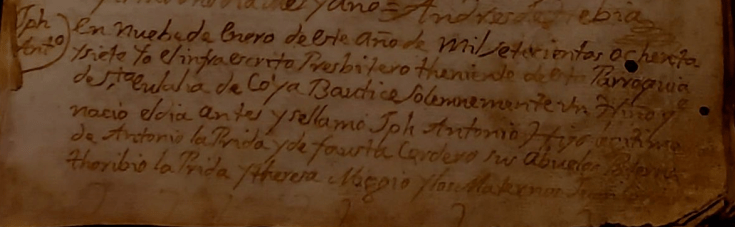 dia y año = Andres de Hebia
Jph
Antº
En nuebe de Enero de este Año de Mil setecientos ochenta
y siete Yo el infraescrito Presbitero theniente de esta Parroquia
de Stª eulalia de Coya Bautice Solemnemente Un Niño qe
nacio el dia antes y se llamó Jph Antonio Hijo lexitimo
de Antonio la Prida y de fausta Cordero sus Abuelos Paternos
thoribio la Prida y theresa Migoio y los Maternos